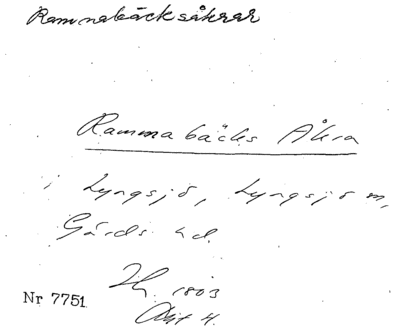 Rammabäcksåkrar
Rammabäcks Åkra
i Lyngsjö, Lyngsjö sn,
Gärds hd.
1803
Akt 4.
Nr 7751